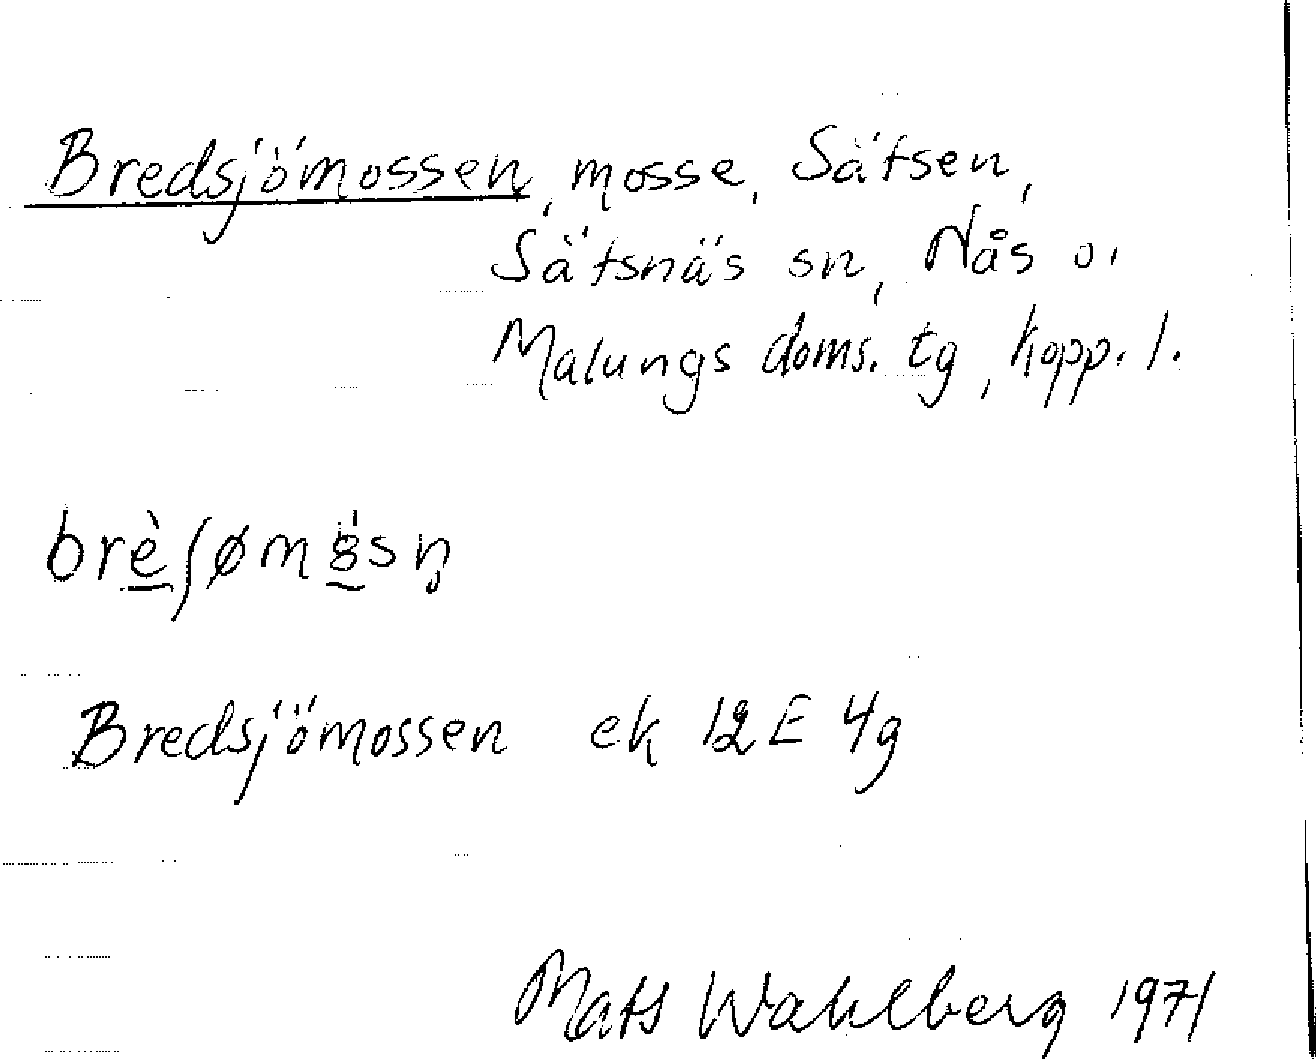 Bredsjömossen, mosse, Sätsen,
Sätsnäs sn, Nås o.
Malungs doms. tg, Kopp. l.
Bredsjömossen ek 12E 4g
Mats Wahlberg 1971